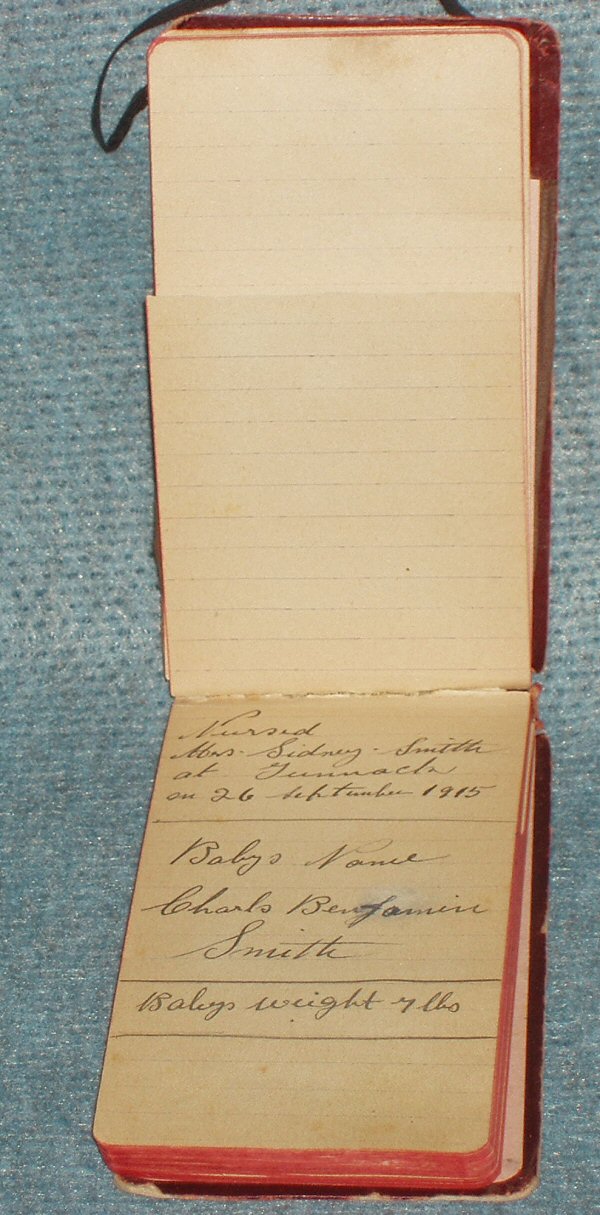 Nursed
Mrs. Sidney. Smith
at Tunnack
on 26 September 1915
Babys Name
Charls Benjamin
Smith
Babys weight 7 lbs